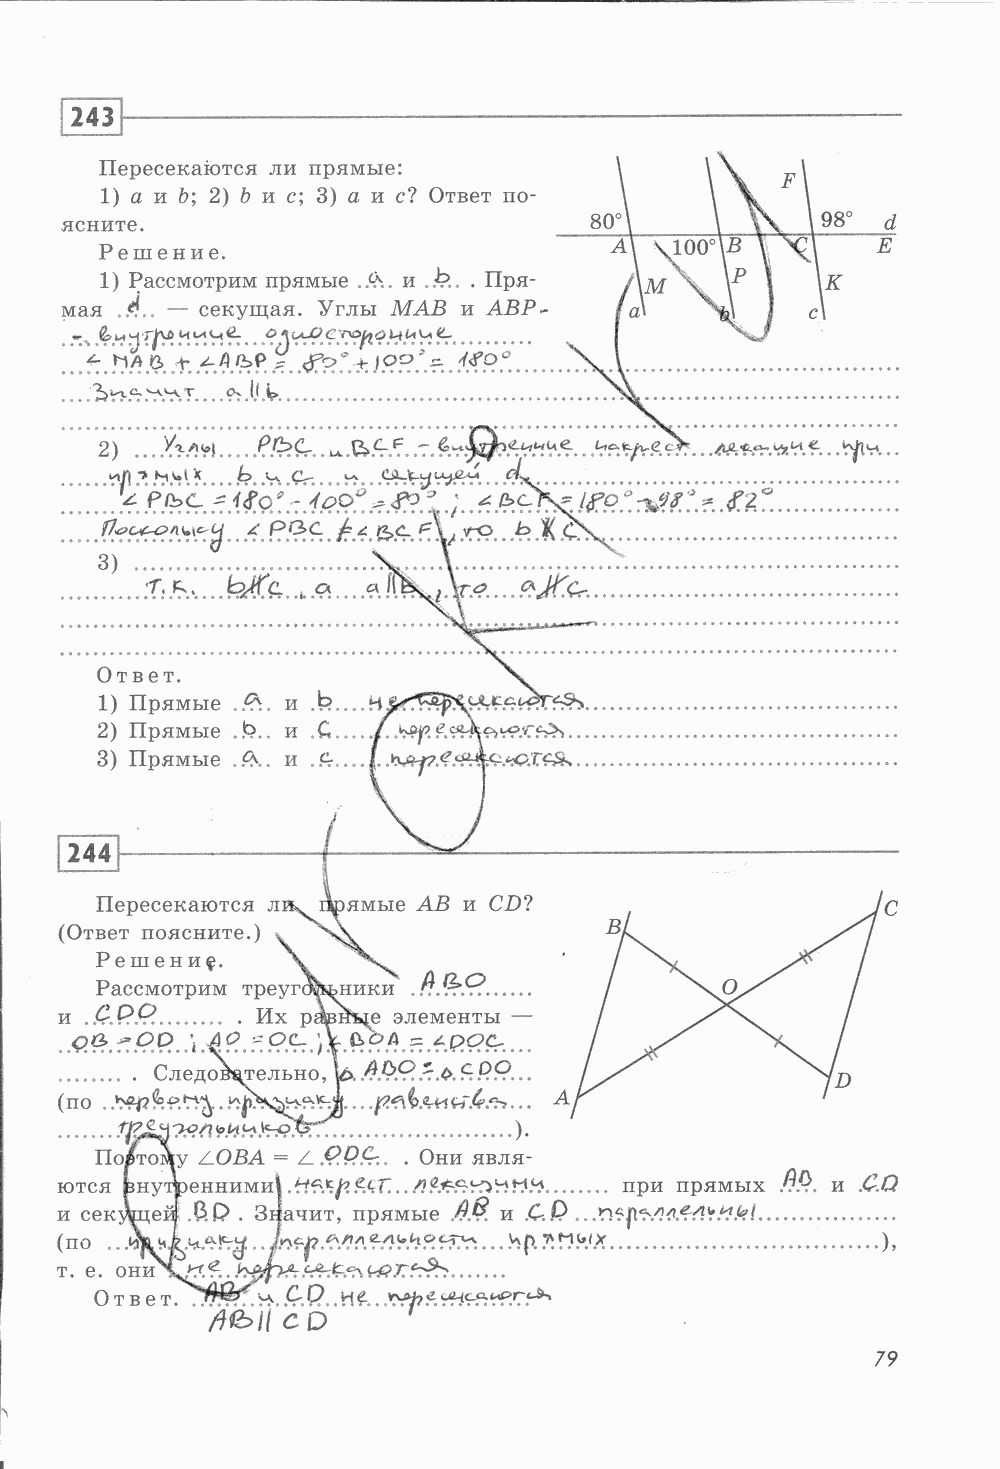 243
Пересекаются ли прямые:
1) a и b; 2) b и c; 3) a и c? Ответ по-
ясните.
Решение.
1) Рассмотрим прямые a и b . Пря-
мая d — секущая. Углы MAB и ABP -
- внутренние односторонние
∠MAB + ∠ABP = 80° + 100° = 180°
Значит a || b
80°
98°
100°
F
d
A
B
C
E
M
P
K
a
b
c
2) Углы PBC и BCF - внутренние накрест лежащие при
прямых b и c и секущей d,
∠PBC = 180° - 100° = 80° ; ∠BCF = 180° - 98° = 82°
Поскольку ∠PBC ≠ ∠BCF, то b ∦ c
3)
т.к. b ∦ c , а a || b , то a ∦ c
Ответ.
1) Прямые a и b не пересекаются
2) Прямые b и c пересекаются
3) Прямые a и c пересекаются
244
Пересекаются ли прямые AB и CD?
(Ответ поясните.)
Решение.
Рассмотрим треугольники ABO
и CDO . Их равные элементы —
OB = OD ; AO = OC ; ∠BOA = ∠DOC
. Следовательно, △ABO = △CDO
(по первому признаку равенства
треугольников ).
B
C
O
A
D
Поэтому ∠OBA = ∠ ODC . Они явля-
ются внутренними накрест лежащими при прямых AB и CD
и секущей BD . Значит, прямые AB и CD параллельны
(по признаку параллельности прямых ),
т. е. они не пересекаются
Ответ. AB и CD не пересекаются
AB || CD
79